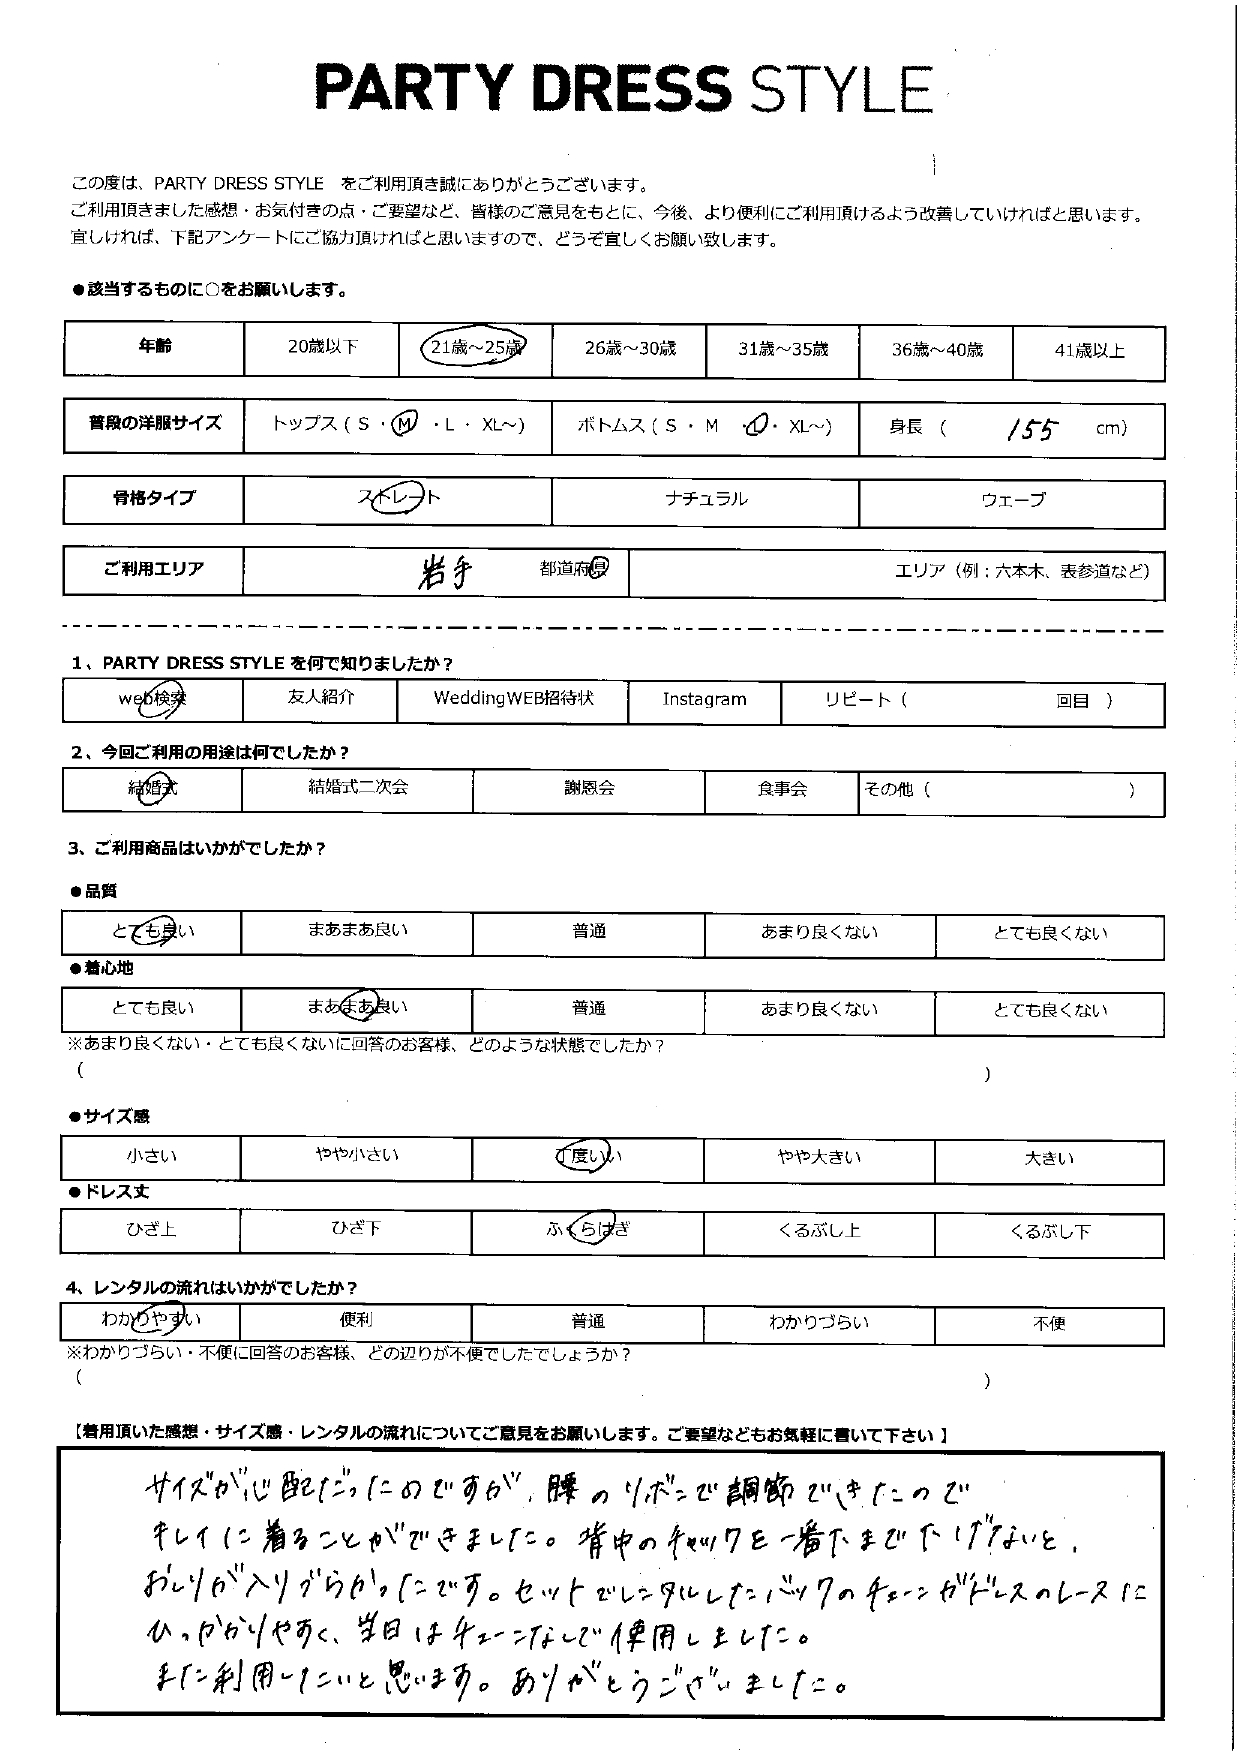 PARTY DRESS STYLE
この度は、PARTY DRESS STYLE　をご利用頂き誠にありがとうございます。
ご利用頂きました感想・お気付きの点・ご要望など、皆様のご意見をもとに、今後、より便利にご利用頂けるよう改善していければと思います。
宜しければ、下記アンケートにご協力頂ければと思いますので、どうぞ宜しくお願い致します。
●該当するものに○をお願いします。
年齢 20歳以下 21歳～25歳 26歳～30歳 31歳～35歳 36歳～40歳 41歳以上
普段の洋服サイズ トップス ( S ・ M ・ L ・ XL～) ボトムス ( S ・ M ・ L ・ XL～) 身長 ( 155 cm)
骨格タイプ ストレート ナチュラル ウェーブ
ご利用エリア 岩手 都道府県 エリア（例：六本木、表参道など）
1、PARTY DRESS STYLE を何で知りましたか？
web検索 友人紹介 WeddingWEB招待状 Instagram リピート（ 回目 ）
2、今回ご利用の用途は何でしたか？
結婚式 結婚式二次会 謝恩会 食事会 その他（ ）
3、ご利用商品はいかがでしたか？
●品質
とても良い まあまあ良い 普通 あまり良くない とても良くない
●着心地
とても良い まあまあ良い 普通 あまり良くない とても良くない
※あまり良くない・とても良くないに回答のお客様、どのような状態でしたか？
( )
●サイズ感
小さい やや小さい 丁度いい やや大きい 大きい
●ドレス丈
ひざ上 ひざ下 ふくらはぎ くるぶし上 くるぶし下
4、レンタルの流れはいかがでしたか？
わかりやすい 便利 普通 わかりづらい 不便
※わかりづらい・不便に回答のお客様、どの辺りが不便でしたでしょうか？
( )
【着用頂いた感想・サイズ感・レンタルの流れについてご意見をお願いします。ご要望などもお気軽に書いて下さい 】
サイズが心配だったのですが、腰のリボンで調節できたので
キレイに着ることができました。背中のチャックを一番下まで下げないと、
おしりが入りづらかったです。セットでレンタルしたバックのチェーンがドレスのレースに
ひっかかりやすく、当日はチェーンなしで使用しました。
また利用したいと思います。ありがとうございました。